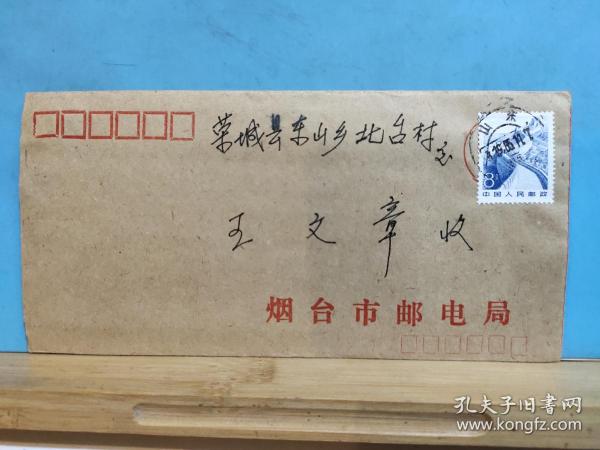 荣城县东山乡北台村交
王文章收
烟台市邮电局
山东
8
中国人民邮政
孔夫子旧书网
www.kongfz.com